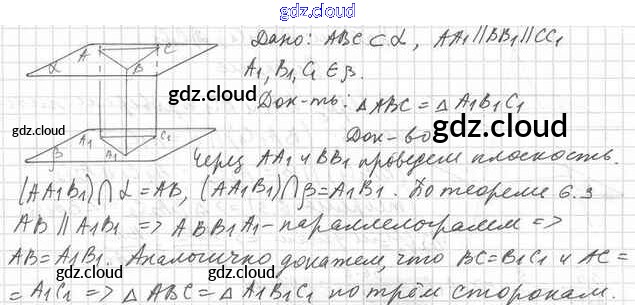 gdz.cloud
Дано: ABC ⊂ α, AA₁ ∥ BB₁ ∥ CC₁
A₁, B₁, C₁ ∈ β.
gdz.cloud
Док-ть: △ABC = △A₁B₁C₁
gdz.cloud
Док-во
gdz.cloud
A C
α B
A₁ C₁
β A₁
Через AA₁ и BB₁ проведем плоскость.
(AA₁B₁) ∩ α = AB, (AA₁B₁) ∩ β = A₁B₁. По теореме 6.3
AB ∥ A₁B₁ => ABB₁A₁ - параллелограмм =>
AB = A₁B₁. Аналогично докажем, что BC = B₁C₁ и AC =
= A₁C₁ => △ABC = △A₁B₁C₁ по трём сторонам.
gdz.cloud
gdz.cloud